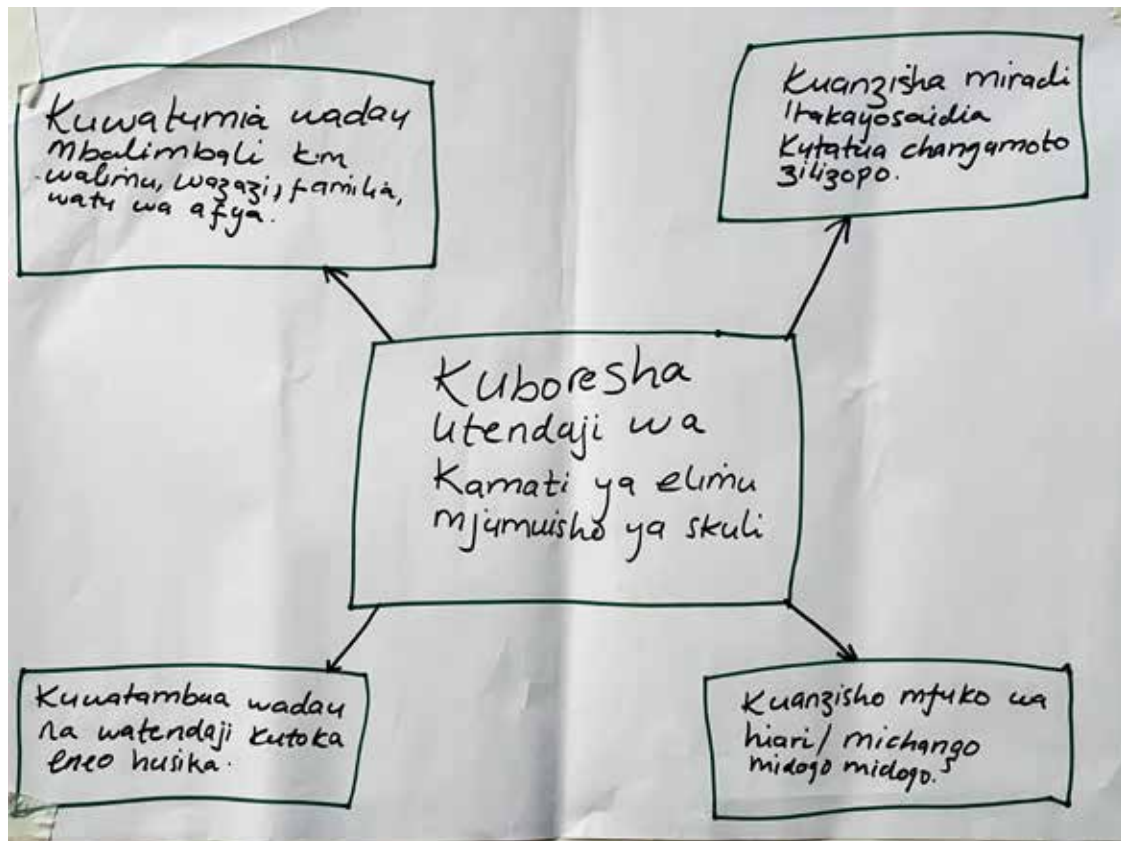 Kuwatumia wadau
Mbalimbali km
walimu, wazazi, familia,
watu wa afya.
Kuanzisha miradi
Itakayosaidia
Kutatua changamoto
zilizopo.
Kuboresha
Utendaji wa
Kamati ya elimu
mjumuisho ya skuli
Kuwatambua wadau
na watendaji kutoka
eneo husika.
Kuanzisho mfuko wa
hiari/ michango
midogo midogo.